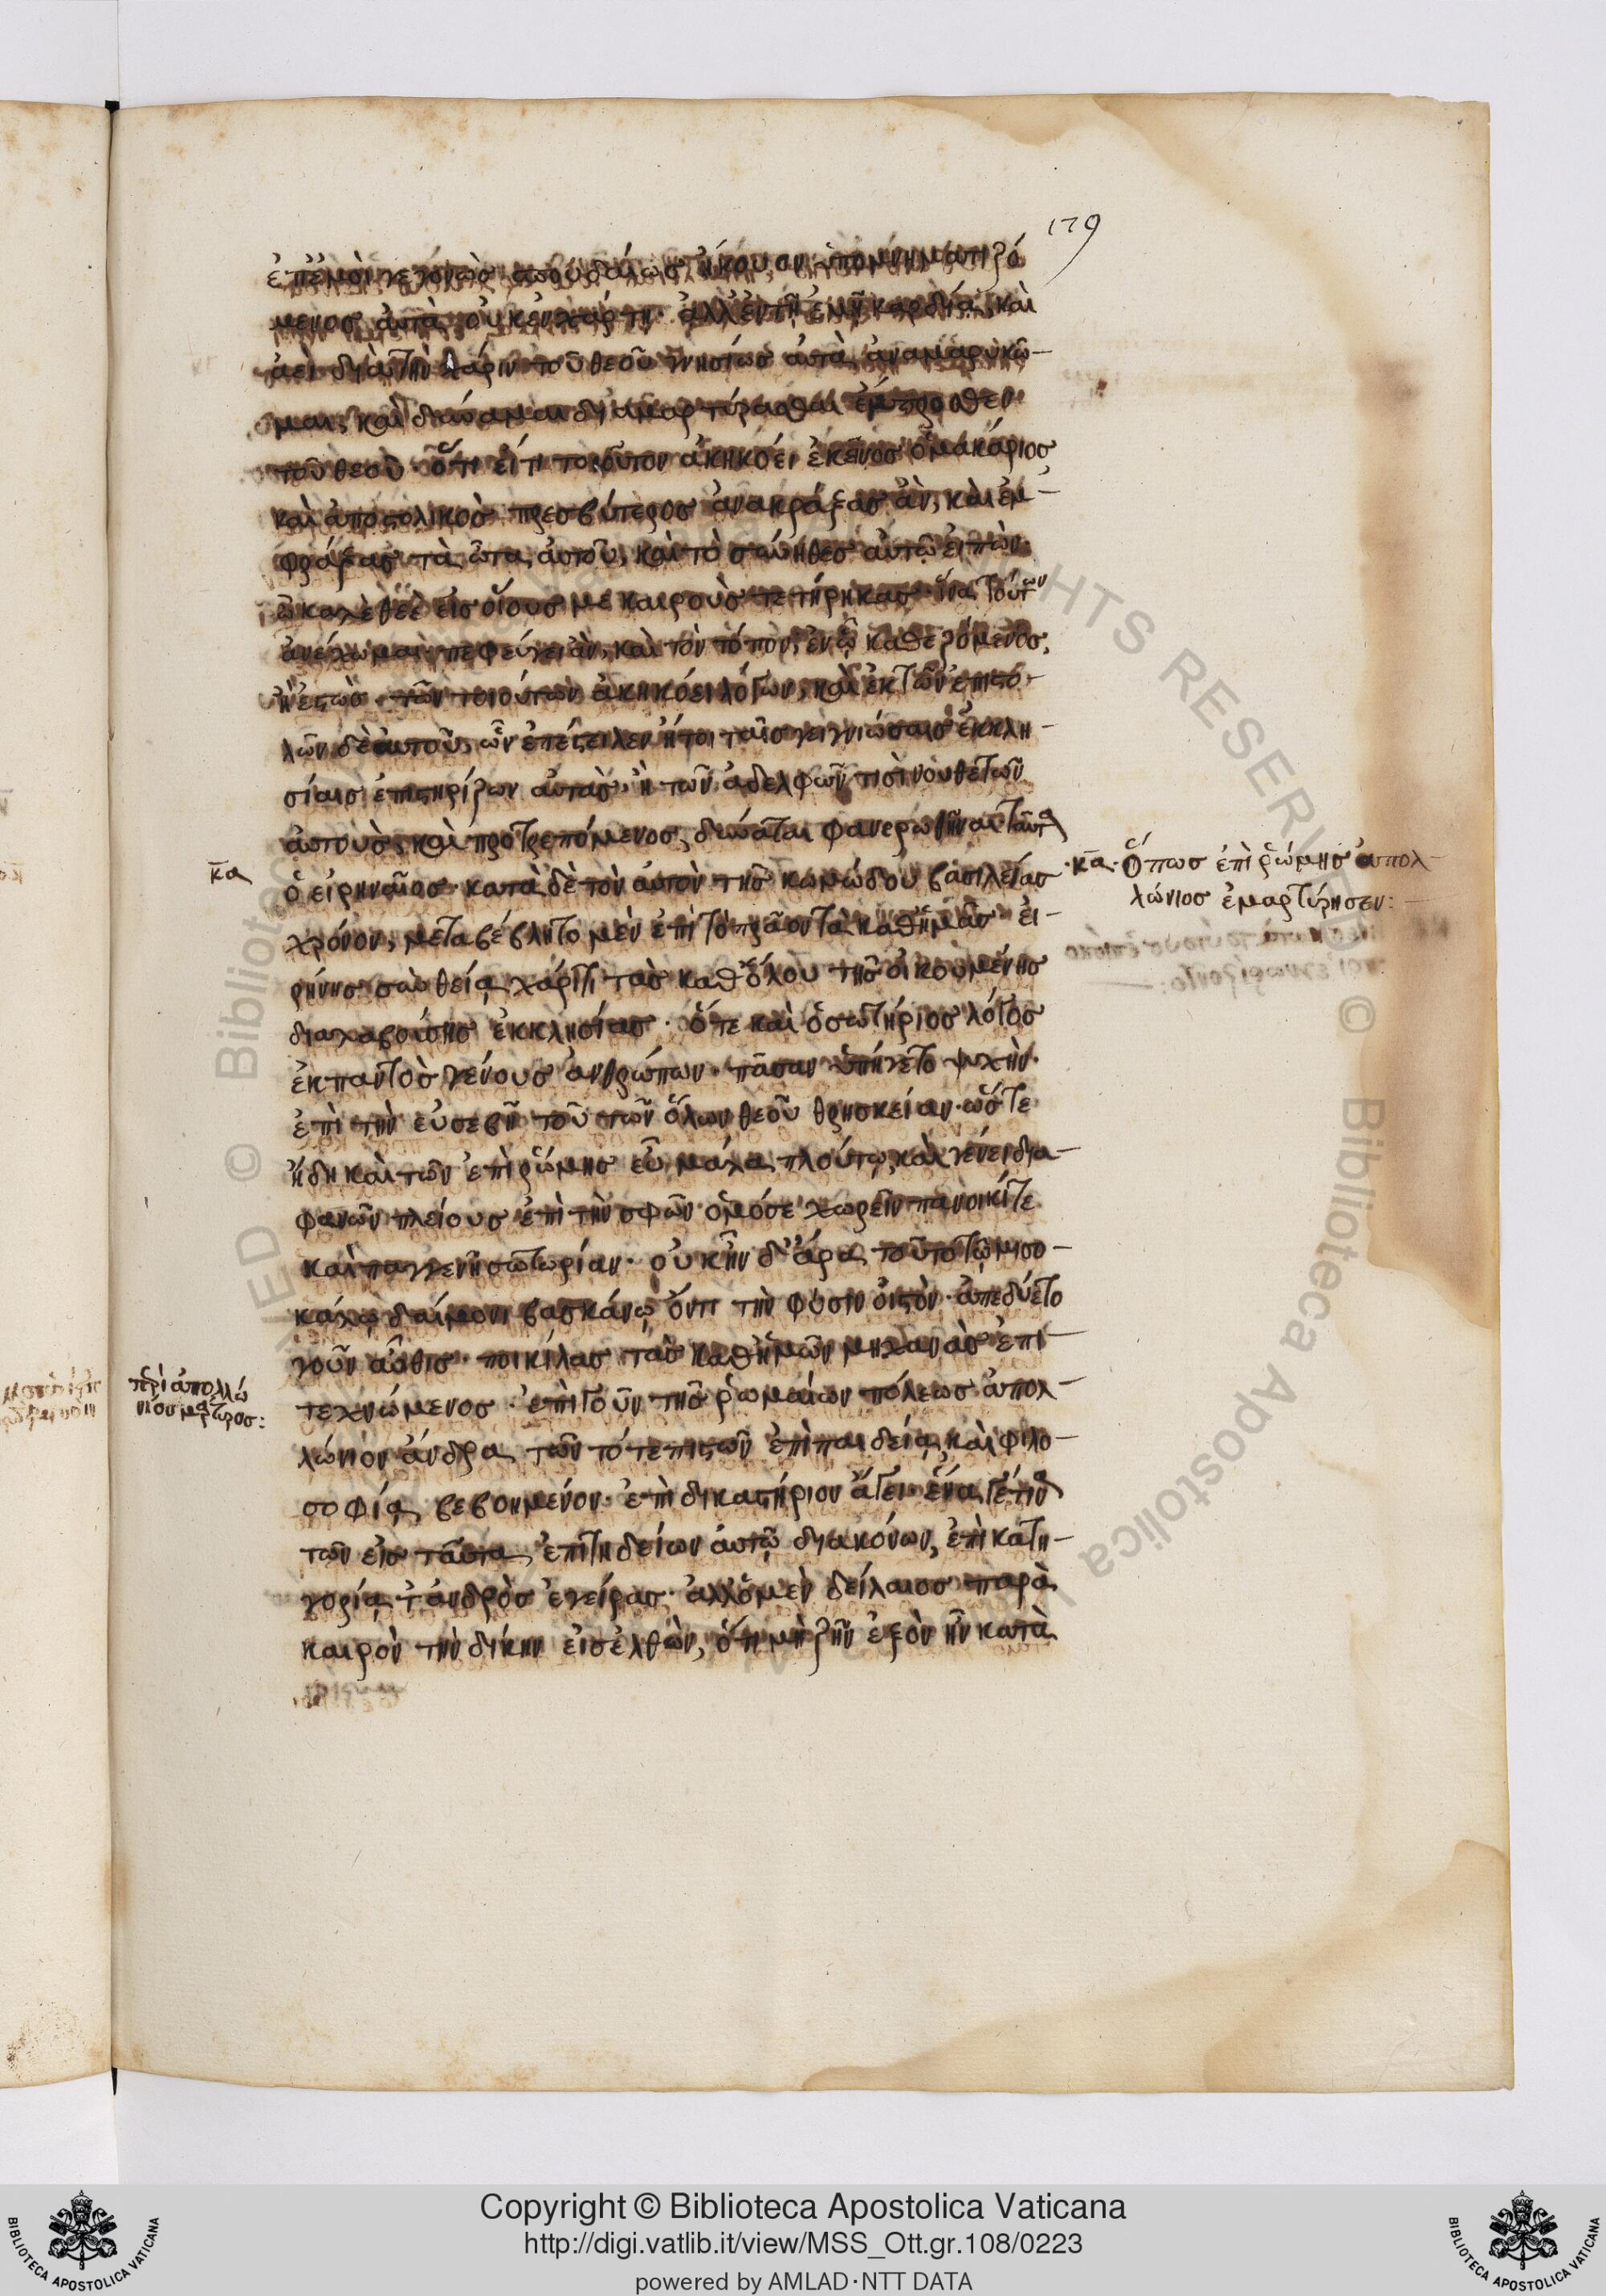 179
ἐπ' ἐμοὶ γεγονὼς σπουδαίως ἤκουον ὑπομνηματιζό
μενος αὐτὰ οὐκ ἐν χάρτη· ἀλλ' ἐν τῆ ἐμῆ καρδία, καὶ
ἀεὶ διὰ τὴν χάριν τοῦ θεοῦ γνησίως αὐτὰ ἀναμαρυκῶ-
μαι, καὶ δύναμαι διαμαρτύρασθαι ἔμπροσθεν
τοῦ θεοῦ· ὅτι εἴ τι τοιοῦτον ἀκηκόει ἐκεῖνος ὁ μακάριος
καὶ ἀποστολικὸς πρεσβύτερος ἀνακράξας ἂν, καὶ ἐμ-
φράξας τὰ ὦτα αὐτοῦ, καὶ τὸ σύνηθες αὐτῶ εἰπών·
ὦ καλὲ θεὲ εἰς οἵους με καιροὺς τετήρηκας· ἵνα τούτων
ἀνέχωμαι· πεφεύγει ἂν, καὶ τὸν τόπον, ἐν ᾧ καθεζόμενος,
ἢ ἑστὼς τῶν τοιούτων ἀκηκόει λόγων, καὶ ἐκ τῶν ἐπιστο-
λῶν δὲ αὐτοῦ, ὧν ἐπέστειλεν ἤτοι ταῖς γειτνιώσαις ἐκκλη-
σίαις ἐπιστηρίζων αὐτάς· ἢ τῶν ἀδελφῶν τισὶ νουθετῶν
αὐτοὺς καὶ προτρεπόμενος, δύναται φανερωθῆναι ταῦτα
κα ὁ εἰρηναῖος· κατὰ δὲ τὸν αὐτὸν τῆς κωμώδου βασιλείας
·κα· Ὅπως ἐπὶ ῥώμης ἀπολ-
λώνιος ἐμαρτύρησεν:
χρόνον, μεταβέβλητο μὲν ἐπὶ τὸ πρᾶον τὰ καθ' ἡμᾶς· εἰ-
ρήνης σὺν θεία χάριτι τὰς καθ' ὅλου τῆς οἰκουμένης
διαλαβούσης ἐκκλησίας· ὅτε καὶ ὁ σωτήριος λόγος
ἐκ παντὸς γένους ἀνθρώπων· πᾶσαν ὑπήγετο ψυχὴν·
ἐπὶ τὴν εὐσεβῆ τοῦ τῶν ὅλων θεοῦ θρησκείαν· ὥστε
ἤδη καὶ τῶν ἐπὶ ῥώμης εὖ μάλα πλούτῳ καὶ γένει δια-
φανῶν πλείους ἐπὶ τὴν σφῶν ὁμόσε χωρεῖν πανοικί τε
καὶ παγγενῆ σωτηρίαν· οὐκ ἦν δ' ἄρα τοῦτο τῷ μισο-
κάλῳ δαίμονι βασκάνῳ ὄντι τὴν φύσιν οἰστὸν· ἀπεδύετο
γοῦν αὖθις· ποικίλας τὰς καθ' ἡμῶν μηχανὰς ἐπι-
περὶ ἀπολλω
νίου μάρτυρος:
τεχνώμενος· ἐπὶ γοῦν τῆς ῥωμαίων πόλεως ἀπολ-
λώνιον ἄνδρα τῶν τότε πιστῶν ἐπὶ παιδεία καὶ φιλο-
σοφία βεβοημένον· ἐπὶ δικαστήριον ἄγει· ἕνα γέ τινα
τῶν εἰς ταῦτα ἐπιτηδείων αὐτῷ διακόνων, ἐπὶ κατη-
γορία τἀνδρὸς ἐγείρας· ἀλλ' ὁ μὲν δείλαιος παρὰ
καιρὸν τὴν δίκην εἰσελθὼν, ὅτι μὴ ζῆν ἐξὸν ἦν κατὰ
Copyright © Biblioteca Apostolica Vaticana
http://digi.vatlib.it/view/MSS_Ott.gr.108/0223
powered by AMLAD·NTT DATA